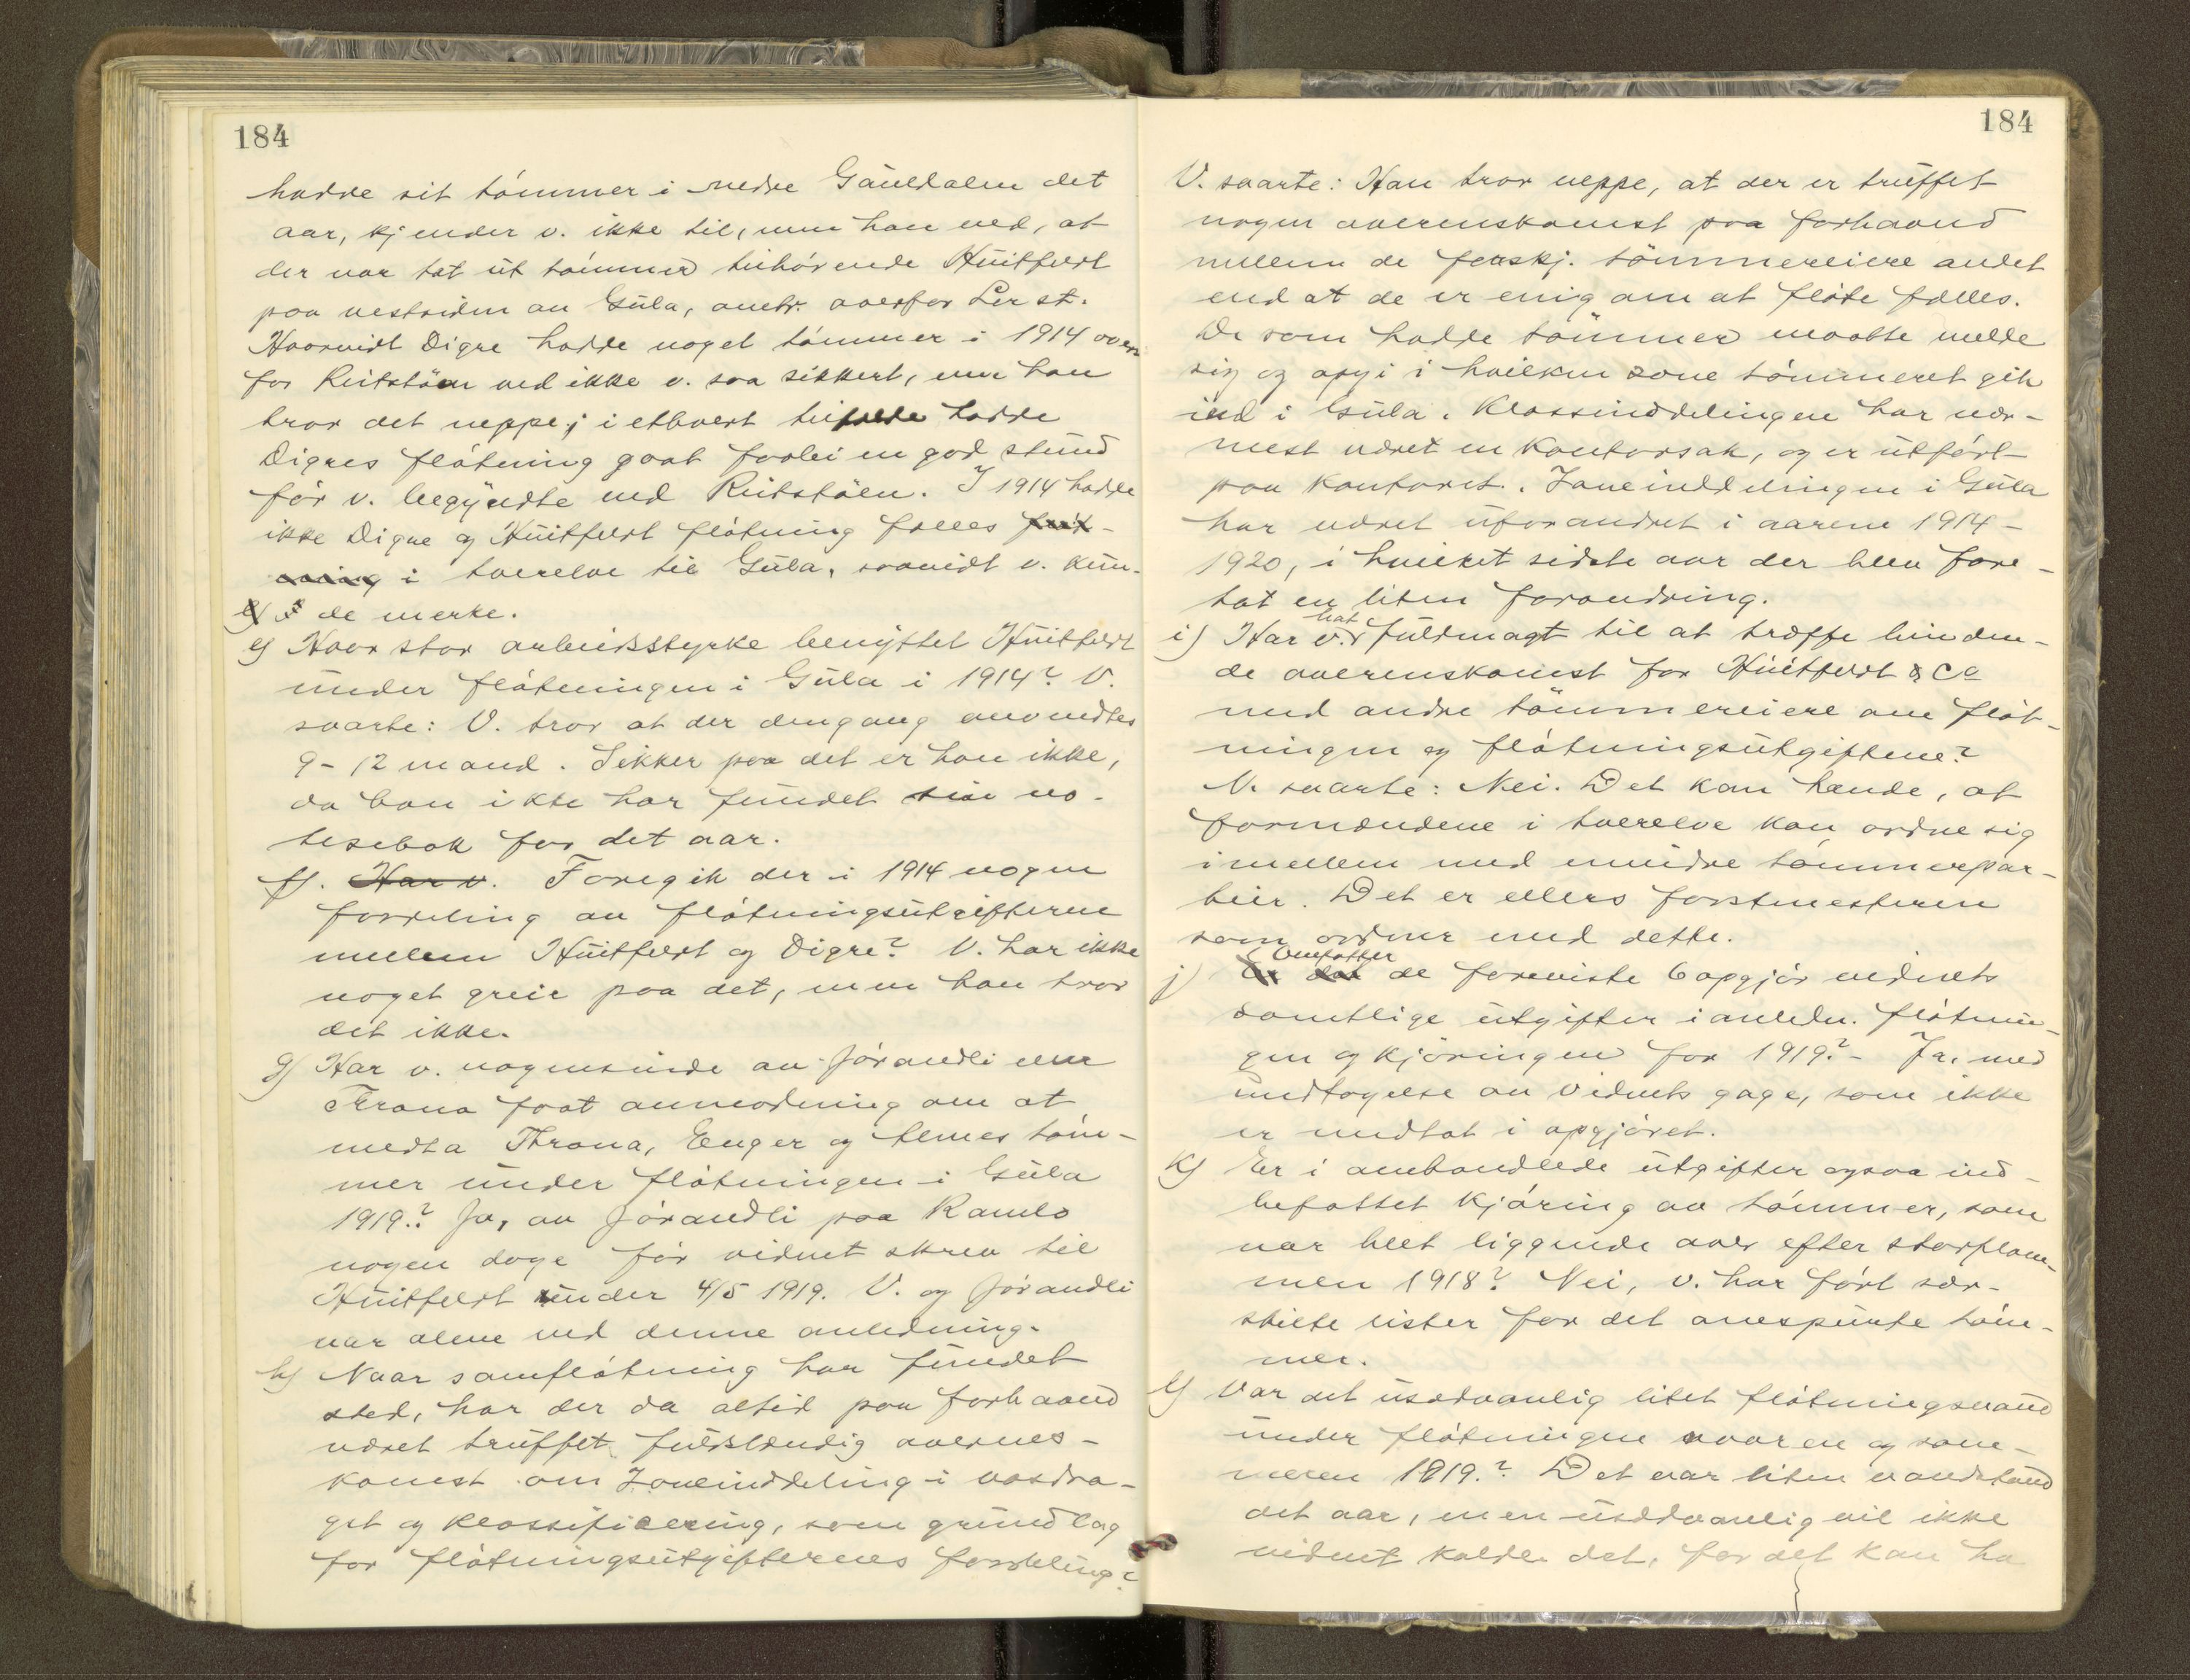 184
hadde sit tömmer i nedre Gauldalen det
aar, kjender v. ikke til, men han ved, at
der var tat ut tömmer tilhörende Huitfeldt
paa vestsiden av Gula, omtr. overfor Ler st.
Hvorvidt Digre hadde noget tömmer i 1914 oven-
for Ruitstöen ved ikke v. saa sikkert, men han
tror det neppe; i ethvert tilfælde hadde
Digres flötning gaat forbi en god stund
för v. begyndte ved Ruitstöen. I 1914 hadde
ikke Digre og Huitfeldt flötning fælles
i tverelve til Gula, saavidt v. kun-
de merke.
e) Hvor stor arbeidsstyrke benyttet Huitfeldt
under flötningen i Gula i 1914? V.
svarte: V. tror at der dengang anvendtes
9-12 mand. Sikker paa det er han ikke,
da han ikke har fundet sin no-
tisebok for det aar.
f). Har v. Foregik der i 1914 nogen
fordeling av flötningsutgifterne
mellem Huitfeldt og Digre? V. har ikke
noget greie paa det, men han tror
det ikke.
g) Har v. nogensinde av Jörandli eller
Throna faat anmodning om at
medta Throna, Enger og Lemes töm-
mer under flötningen i Gula
1919.? Ja, av Jörandli paa Ramlo
nogen dage för vidnet skrev til
Huitfeldt under 4/5 1919. V. og Jörandli
var alene ved denne anledning.
h) Naar samflötning har fundet
sted, har der da altid paa forhaand
været truffet fuldstændig overens-
komst om Zoneinddeling i vasdra-
get og klassificering, som grundlag
for flötningsutgifternes fordeling?
184
V. svarte: Han tror neppe, at der er truffet
nogen overenskomst paa forhaand
mellem de forskj. tömmereiere andet
end at de er enig om at flöte fælles.
De som hadde tömmer maatte melde
sig og opgi i hvilken zone tömmeret gik
ind i Gula. Klassinddelingen har nær-
mest været en kontorsak, og er utfört
paa kontoret. Zoneinddelingen i Gula
har været uforandret i aarene 1914-
1920, i hvilket sidste aar der blev fore-
tat en liten forandring.
i) Har v. hat fuldmagt til at træffe binden-
de overenskomst for Huitfeldt & Co
med andre tömmereiere om flöt-
ningen og flötningsutgiftene?
V. svarte: Nei. Det kan hænde, at
formændene i tverelve kan ordne sig
imellem med mindre tömmerpar-
tier. Det er ellers forstmesteren
som ordner med dette.
j) Omfatter de foreviste 6 opgjör vidnets
samtlige utgifter i anledn. flötnin-
gen og kjöringen for 1919? - Ja, med
undtagelse av vidnets gage, som ikke
er medtat i opgjöret.
k) Er i omhandlede utgifter ogsaa ind-
befattet kjöring av tömmer, som
var blet liggende over efter storflom-
men 1918? Nei, v. har fört sær-
skilte lister for det omspurte töm-
mer.
l) Var det usedvanlig litet flötningsvand
under flötningen vaaren og som-
meren 1919.? Det var liten vandstand
det aar, men usedvanlig vil ikke
vidnet kalde det, for det kan ha